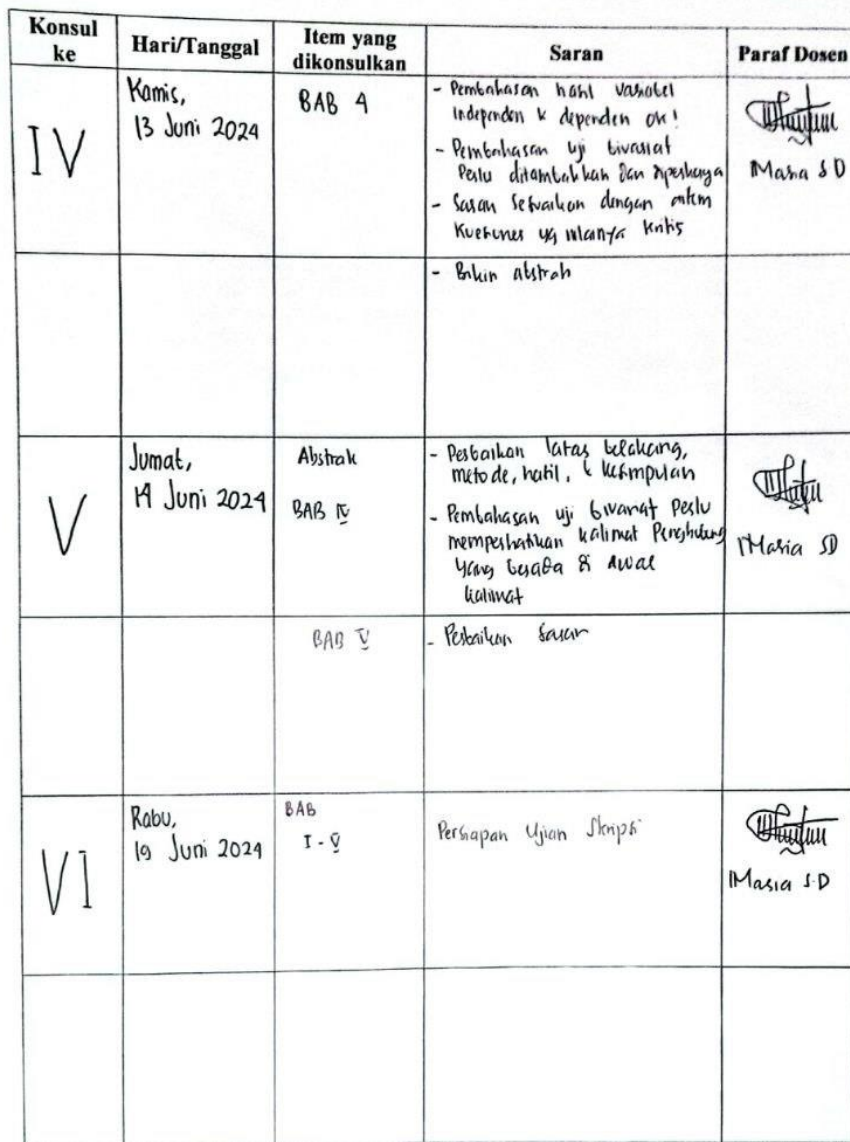 Konsul ke
Hari/Tanggal
Item yang dikonsulkan
Saran
Paraf Dosen
IV
Kamis,
13 Juni 2024
BAB 4
- Pembahasan hasil variabel
independen & dependen ok!
- Pembahasan uji bivariat
Perlu ditambahkan dan diperkaya
- Saran sesuaikan dengan
Kuesioner yg nilainya kritis
Maria SD
- Bikin abstrak
V
Jumat,
14 Juni 2024
Abstrak
BAB IV
- Perbaikan latar belakang,
metode, hasil, & kesimpulan
- Pembahasan uji bivariat perlu
memperhatikan kalimat Penghubung
yang berada di awal
kalimat
Maria SD
BAB V
- Perbaikan saran
VI
Rabu,
19 Juni 2024
BAB
I - V
Persiapan Ujian Skripsi
Maria S.D